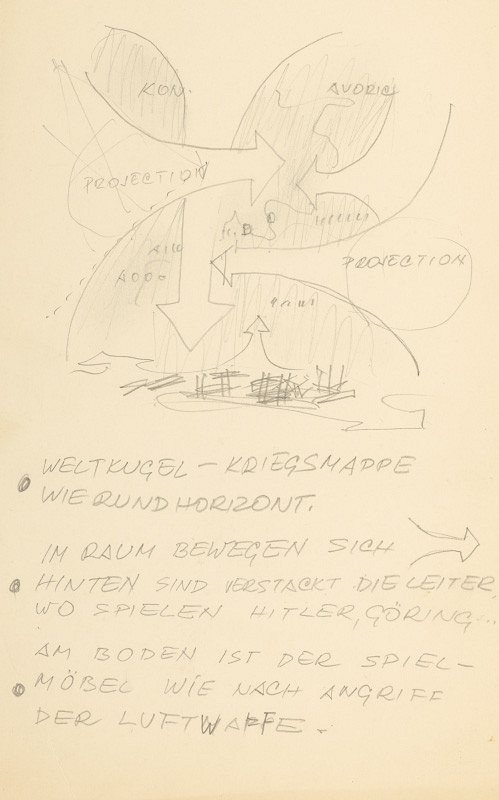 KON.
AVORIG
PROJECTION
PROJECTION
WELTKUGEL – KRIEGSMAPPE
WIE RUNDHORIZONT.
IM RAUM BEWEGEN SICH
HINTEN SIND VERSTACKT DIE LEITER,
WO SPIELEN HITLER, GÖRING...
AM BODEN IST DER SPIEL–
MÖBEL WIE NACH ANGRIFF
DER LUFTWAFFE.